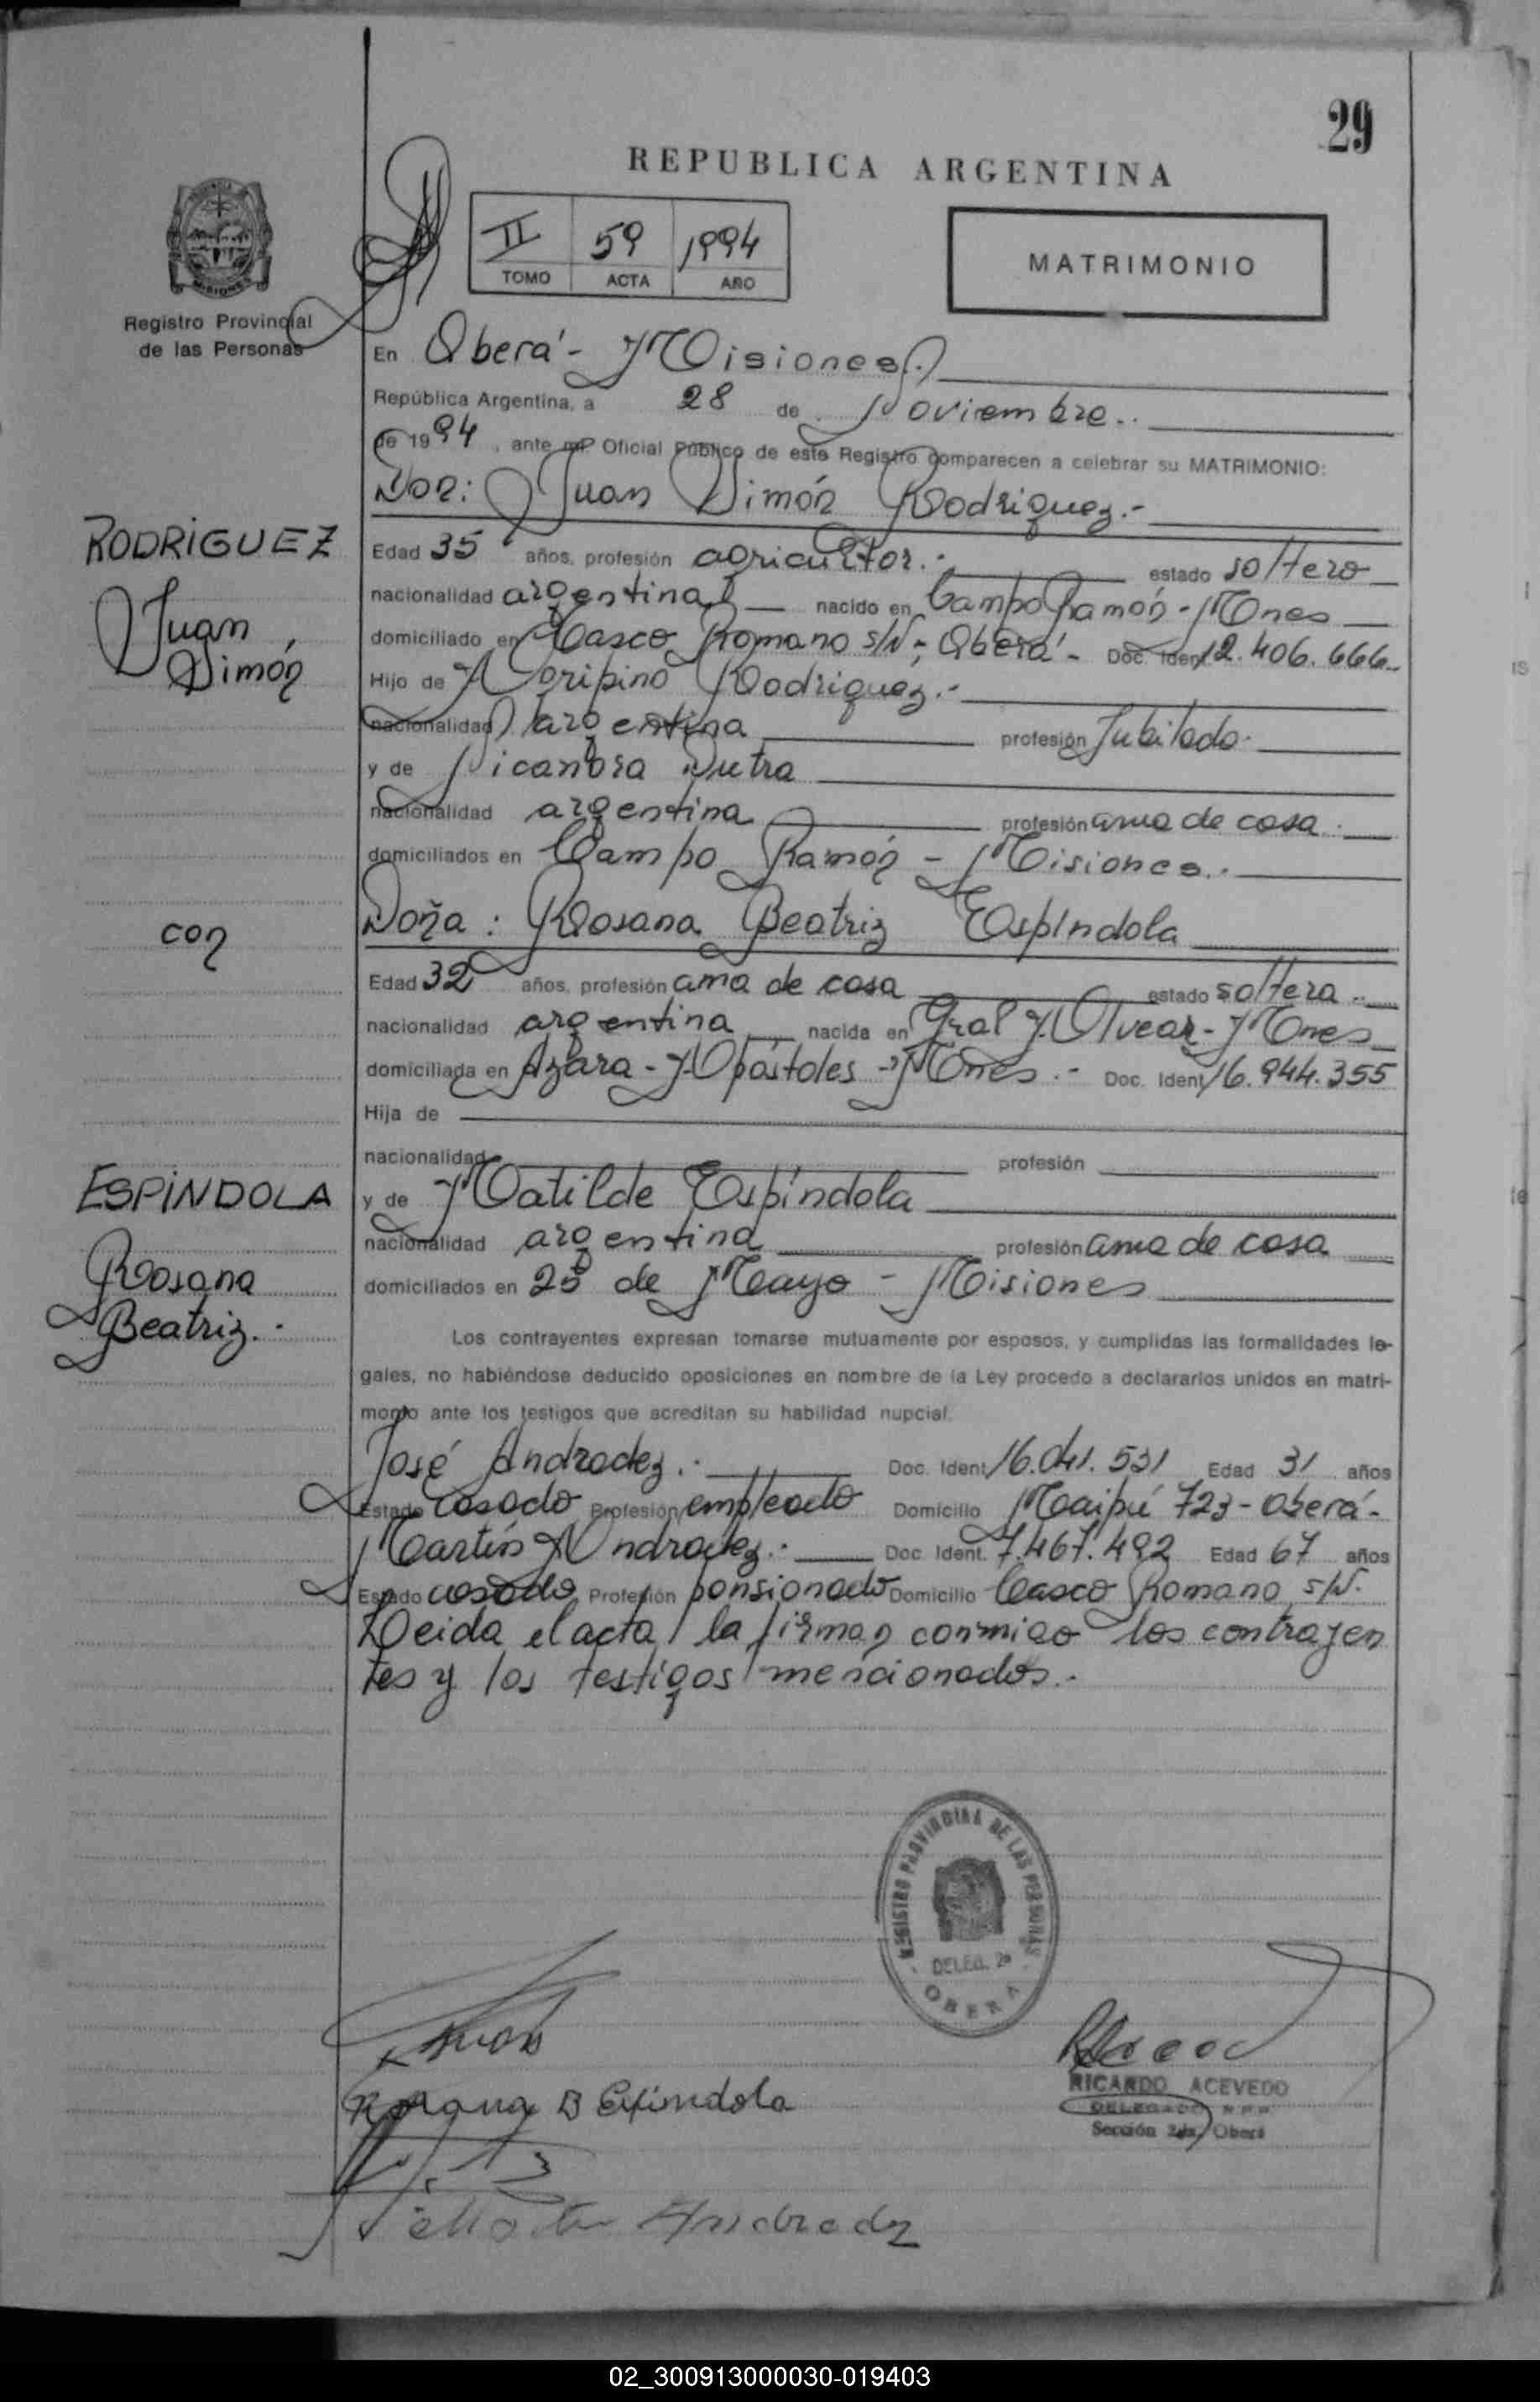 29
REPUBLICA ARGENTINA
II 59 1994
TOMO ACTA AÑO
MATRIMONIO
MISIONES
Registro Provincial
de las Personas
En Oberá - Misiones.
República Argentina, a 28 de Noviembre..
de 1994, ante mí Oficial Público de este Registro comparecen a celebrar su MATRIMONIO:
Don: Juan Simón Rodriguez.-
RODRIGUEZ
Juan
Simón
Edad 35 años, profesión agricultor.- estado soltero
nacionalidad argentina nacido en Campo Ramón - Mnes
domiciliado en Casco Romano s/N - Oberá - Doc. Ident 12.406.666
Hijo de Agripino Rodriguez.-
nacionalidad argentina profesión Jubilado.
y de Nicanora Dutra
nacionalidad argentina profesión ama de casa.
domiciliados en Campo Ramón - Misiones.
con
Doña: Rosana Beatriz Espíndola
Edad 32 años, profesión ama de casa estado soltera..
nacionalidad argentina nacida en Gral Alvear - Mnes
domiciliada en Azara - Apóstoles - Mnes.- Doc. Ident 16.944.355
Hija de
nacionalidad profesión
ESPINDOLA
Rosana
Beatriz.-
y de Matilde Espíndola
nacionalidad argentina profesión ama de casa
domiciliados en 25 de Mayo - Misiones
Los contrayentes expresan tomarse mutuamente por esposos, y cumplidas las formalidades le-
gales, no habiéndose deducido oposiciones en nombre de la Ley procedo a declararlos unidos en matri-
monio ante los testigos que acreditan su habilidad nupcial.
José Andradez.- Doc. Ident 16.041.531 Edad 31 años
Estado casado Profesión empleado Domicilio Maipú 723 - Oberá -
Martín Andradez.- Doc. Ident. 7.467.492 Edad 67 años
Estado casado Profesión pensionado Domicilio Casco Romano s/N.
Leida el acta, la firman conmigo los contrayen
tes y los testigos mencionados.-
REGISTRO PROVINCIAL DE LAS PERSONAS
DELEG. 2ª
OBERA
Juan
Rosana B Espindola
RICARDO ACEVEDO
DELEGADO R.P.P.
Sección 2da. Oberá
Andradez
02_300913000030-019403